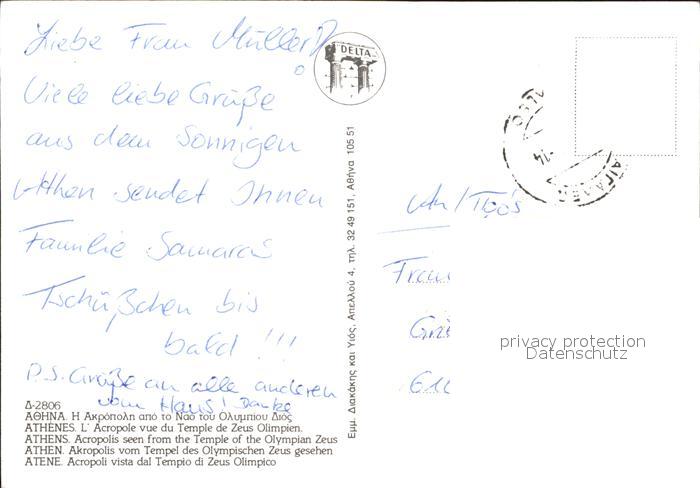 Liebe Frau Müller!
Viele liebe Grüße
aus dem Sonnigen
Athen sendet Ihnen
Familie Samaras
Tschüßchen bis
bald!!!
P.S. Grüße an alle anderen
vom Haus! Danke
Δ-2806
ΑΘΗΝΑ. Η Ακρόπολη από το Ναό του Ολυμπίου Διός
ATHÈNES. L' Acropole vue du Temple de Zeus Olimpien.
ATHENS. Acropolis seen from the Temple of the Olympian Zeus
ATHEN. Akropolis vom Tempel des Olympischen Zeus gesehen
ATENE. Acropoli vista dal Tempio di Zeus Olimpico
DELTA
Εμμ. Διακάκης και Υιός, Απελλού 4, τηλ. 32 49 151, Αθήνα 105 51
An/Προς
Frau
privacy protection
Datenschutz